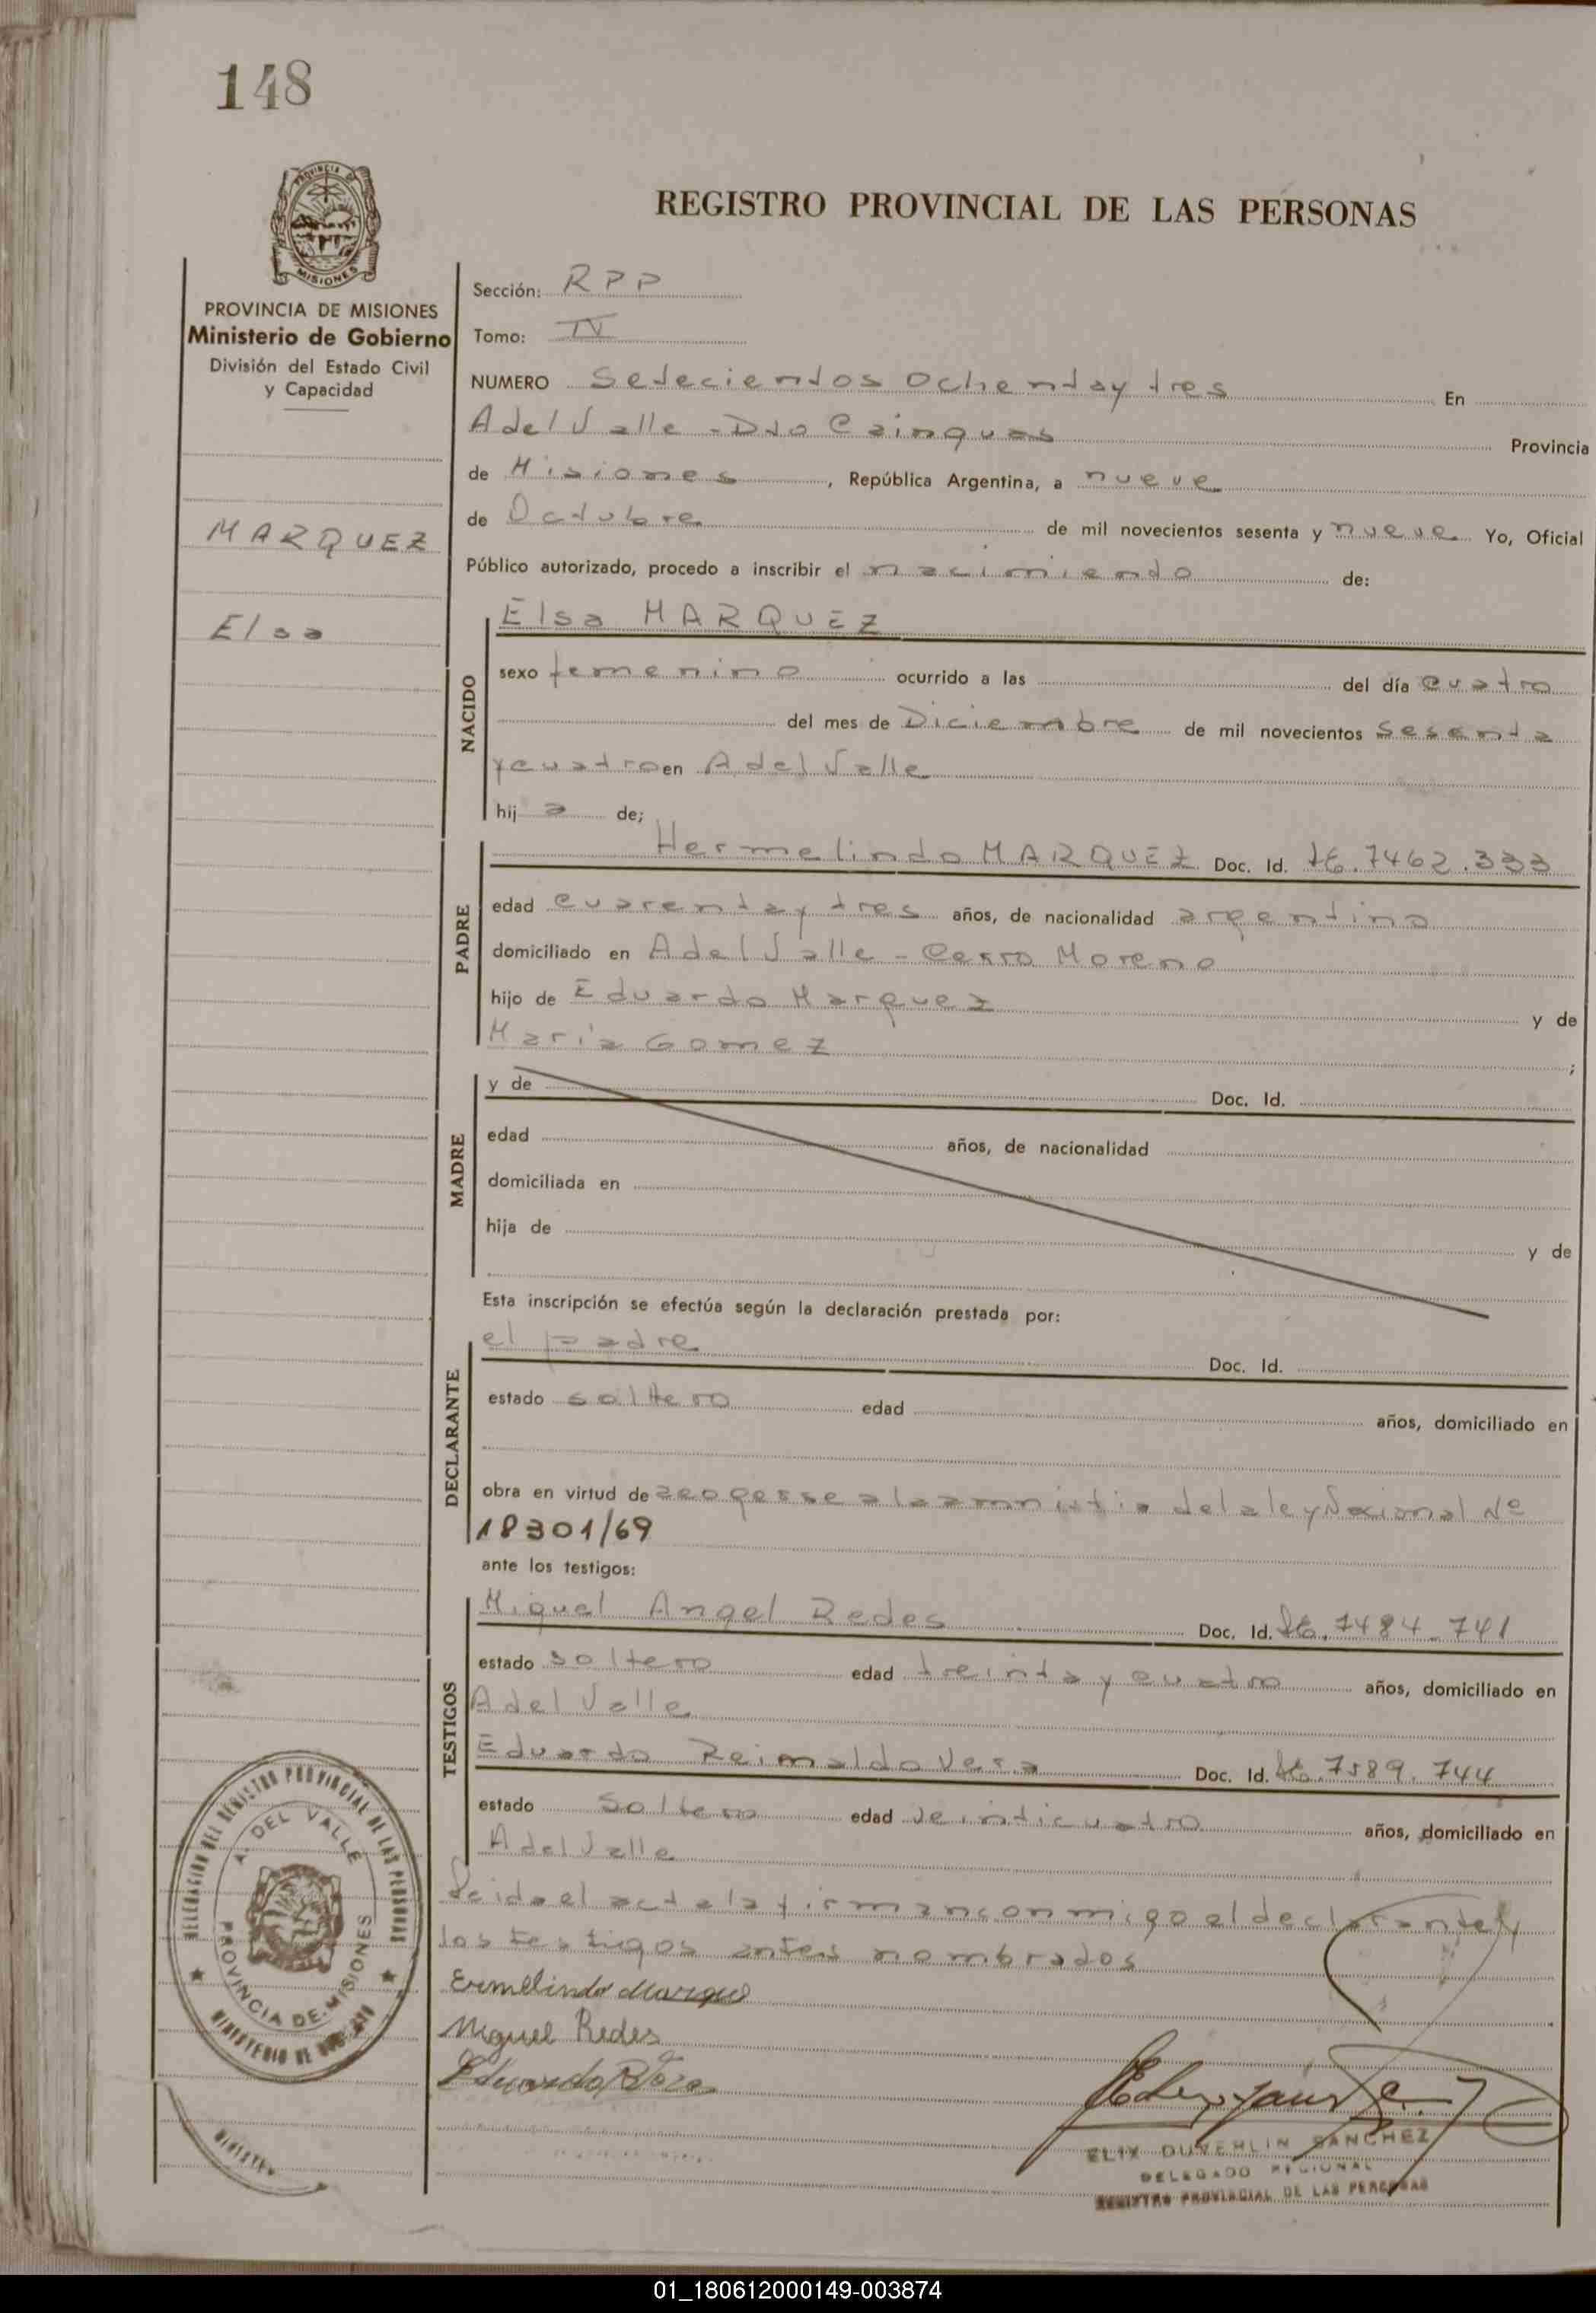 148
PROVINCIA DE
MISIONES
REGISTRO PROVINCIAL DE LAS PERSONAS
PROVINCIA DE MISIONES
Ministerio de Gobierno
División del Estado Civil
y Capacidad
MARQUEZ
Elsa
Sección: RPP
Tomo: IV
NUMERO Setecientos Ochenta y tres En
A del Valle - Dto Cainguas Provincia
de Misiones, República Argentina, a nueve
de Octubre de mil novecientos sesenta y nueve Yo, Oficial
Público autorizado, procedo a inscribir el nacimiento de:
NACIDO
Elsa MARQUEZ
sexo femenino ocurrido a las del día cuatro
del mes de Diciembre de mil novecientos sesenta
y cuatro en A del Valle
hija de;
PADRE
Hermelindo MARQUEZ Doc. Id. 7462.333
edad cuarenta y tres años, de nacionalidad argentino
domiciliado en A del Valle - Cerro Moreno
hijo de Eduardo Marquez y de
Maria Gomez ;
MADRE
y de Doc. Id.
edad años, de nacionalidad
domiciliada en
hija de y de
Esta inscripción se efectúa según la declaración prestada por:
DECLARANTE
el padre Doc. Id.
estado soltero edad años, domiciliado en
obra en virtud de acogerse a la amnistia de la ley Nacional Nº
18301/69
ante los testigos:
TESTIGOS
Miguel Angel Redes Doc. Id. 7484.741
estado soltero edad treinta y cuatro años, domiciliado en
A del Valle
Eduardo Reimaldo Vera Doc. Id. 7589.744
estado soltero edad veinticuatro años, domiciliado en
A del Valle
Leida el acta la firman conmigo el declarante y
los testigos antes nombrados
Ermelindo Marque
Miguel Redes
Eduardo R Vera
DELEGACION DEL REGISTRO PROVINCIAL DE LAS PERSONAS
A. DEL VALLE
PROVINCIA DE MISIONES
MINISTERIO DE GOBIERNO
ELIX DUVERLIN SANCHEZ
DELEGADO REGIONAL
REGISTRO PROVINCIAL DE LAS PERSONAS
01_180612000149-003874